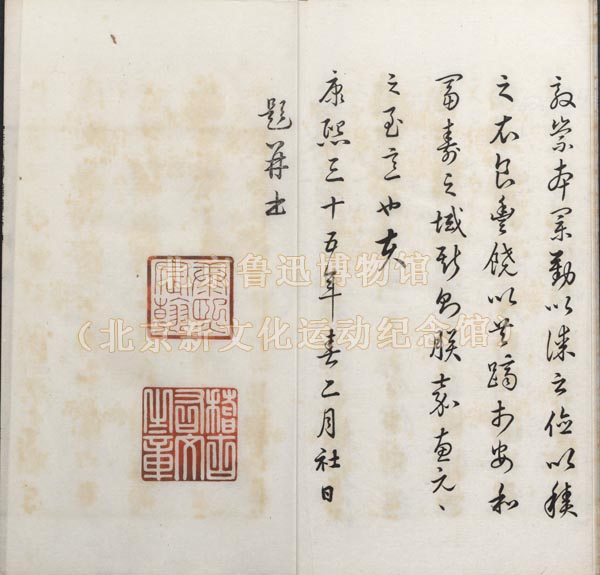 敦崇本業勤以謀之儉以積
之衣食豐饒以共躋於安和
富壽之域斯則朕嘉惠元〻
之至意也夫
康熙三十五年春二月社日
題并書
康熙宸翰
稽古右文之章
北京鲁迅博物馆
(北京新文化运动纪念馆)